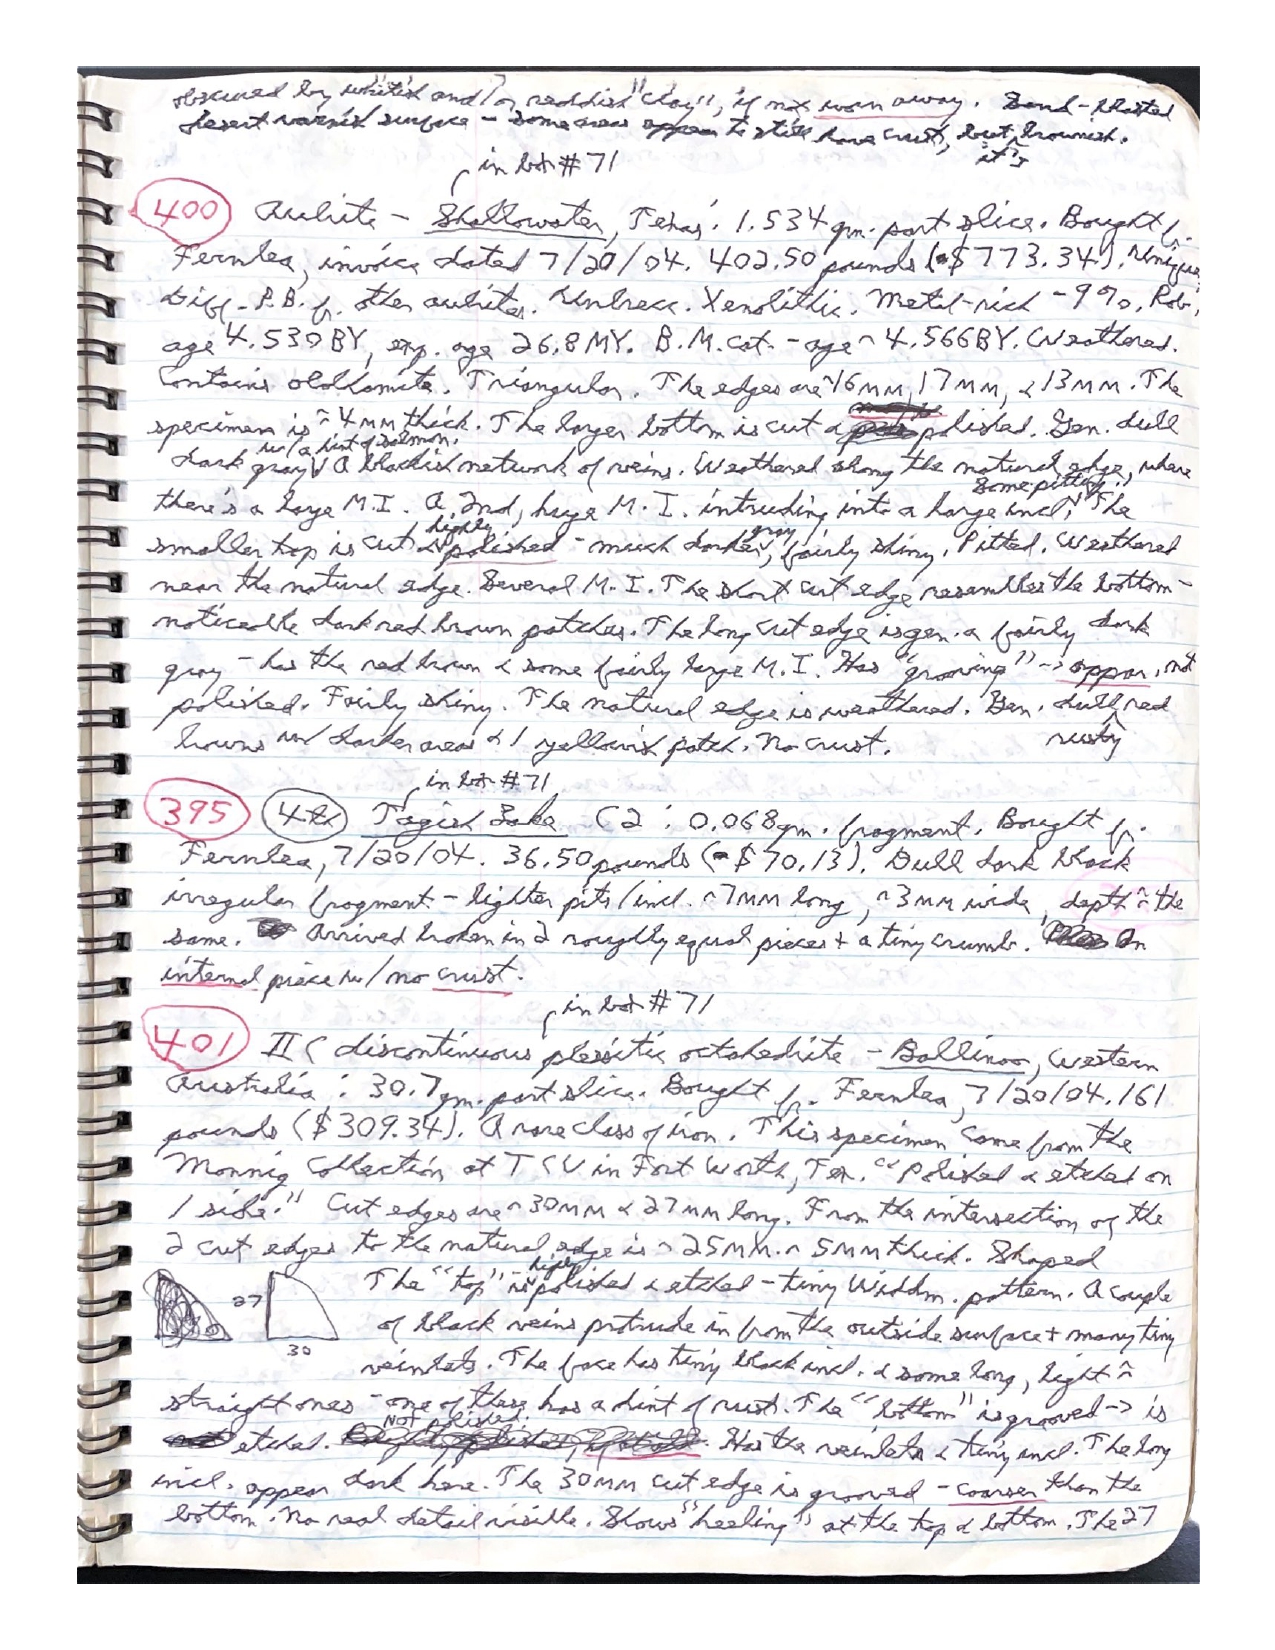 obscured by "whitish and/or reddish "clay", if not worn away. Sand-blasted
desert varnish surface - some areas appear to still have crust, but it's brownish.
in lot #71
400 Aubrite - Shallowater, Texas: 1.534 gm. part slice. Bought f.
Fernlea, invoice dated 7/20/04. 402.50 pounds (~$773.34). Unique,
diff. P.B. f. other aubrites. Unbrecc. Xenolithic. Metal-rich - 9%. Rob.
age 4.530 BY, exp. age 26.8 MY. B.M. cat. - age ~ 4.566 BY. Weathered.
Contains oldhamite. Triangular. The edges are ~16mm, 17mm, & 13mm. The
specimen is ~ 4mm thick. The larger bottom is cut & polished. Gen. dull
dark gray w/ a hint of salmon. A blackish network of veins. Weathered along the natural edge, where
there's a large M.I. A 2nd, huge M.I. intruding into a large incl. Some pitting. The
smaller top is cut & highly polished - much darker gray, fairly shiny. Pitted. Weathered
near the natural edge. Several M.I. The short cut edge resembles the bottom -
noticeable dark red brown patches. The long cut edge is gen. a fairly dark
gray - has the red brown & some fairly large M.I. Has "grooving" -> appar. not
polished. Fairly shiny. The natural edge is weathered. Gen. dull rusty red
browns w/ darker areas & 1 yellowish patch. No crust.
in lot #71
395 4th Tagish Lake C2: 0.068 gm. fragment. Bought f.
Fernlea, 7/20/04. 36.50 pounds (~$70.13). Dull dark black
irregular fragment - lighter pits/incl. ~7mm long, ~3mm wide, depth ~ the
same. Arrived broken in 2 roughly equal pieces + a tiny crumb. An
internal piece w/ no crust.
in lot #71
401 IIC discontinuous plessitic octahedrite - Ballinoo, Western
Australia: 30.7 gm. part slice. Bought f. Fernlea, 7/20/04. 161
pounds ($309.34). A rare class of iron. This specimen came from the
Monnig Collection at TCU in Fort Worth, Tex. "Polished & etched on
1 side." Cut edges are ~30mm & 27mm long. From the intersection of the
2 cut edges to the natural edge is ~25mm. ~ 5mm thick. Shaped
The "top" is highly polished & etched - tiny Widdm. pattern. A couple
27
of black veins protrude in from the outside surface + many tiny
30
veinlets. The face has tiny black incl. & some long, light ~
straight ones - one of these has a hint of rust. The "bottom" is grooved -> is
etched. Not polished. Has the veinlets & tiny incl. The long
incl. appear dark here. The 30mm cut edge is grooved - coarser than the
bottom. No real detail visible. Shows "heeling" at the top & bottom. The 27